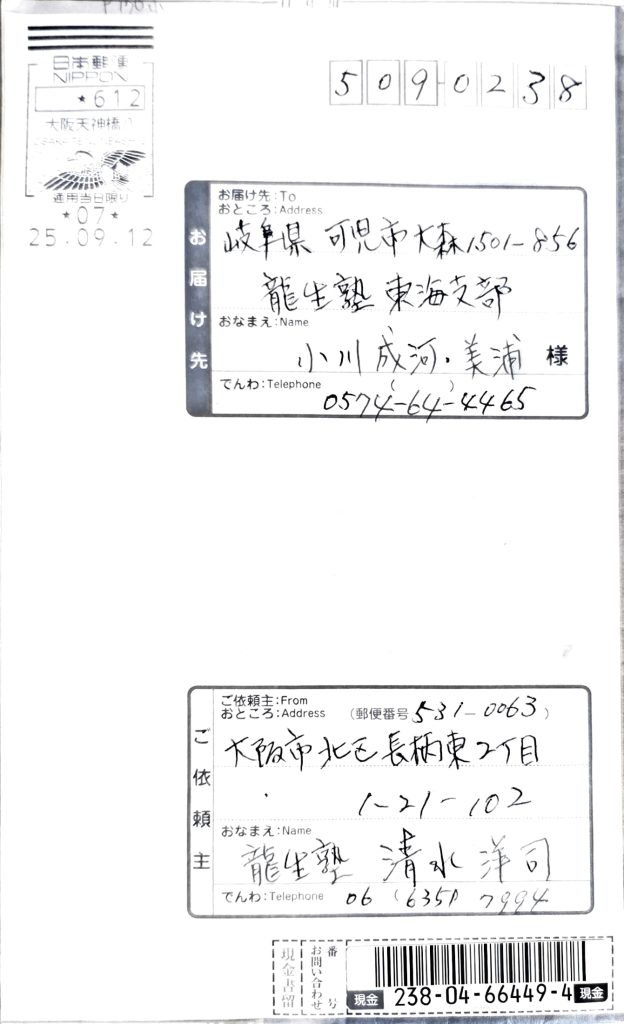 日本郵便
NIPPON
*612
大阪天神橋
適用当日限り
*07*
25.09.12
509-0238
お届け先
お届け先:To
おところ:Address
岐阜県 可児市大森1501-856
龍生塾 東海支部
おなまえ:Name
小川成河・美浦 様
でんわ:Telephone
0574-64-4465
ご依頼主
ご依頼主:From
おところ:Address (郵便番号 531-0063)
大阪市北区長柄東2丁目
1-21-102
おなまえ:Name
龍生塾 清水洋司
でんわ:Telephone 06 (6351) 7994
現金書留
お問い合わせ番号
現金 238-04-66449-4 現金